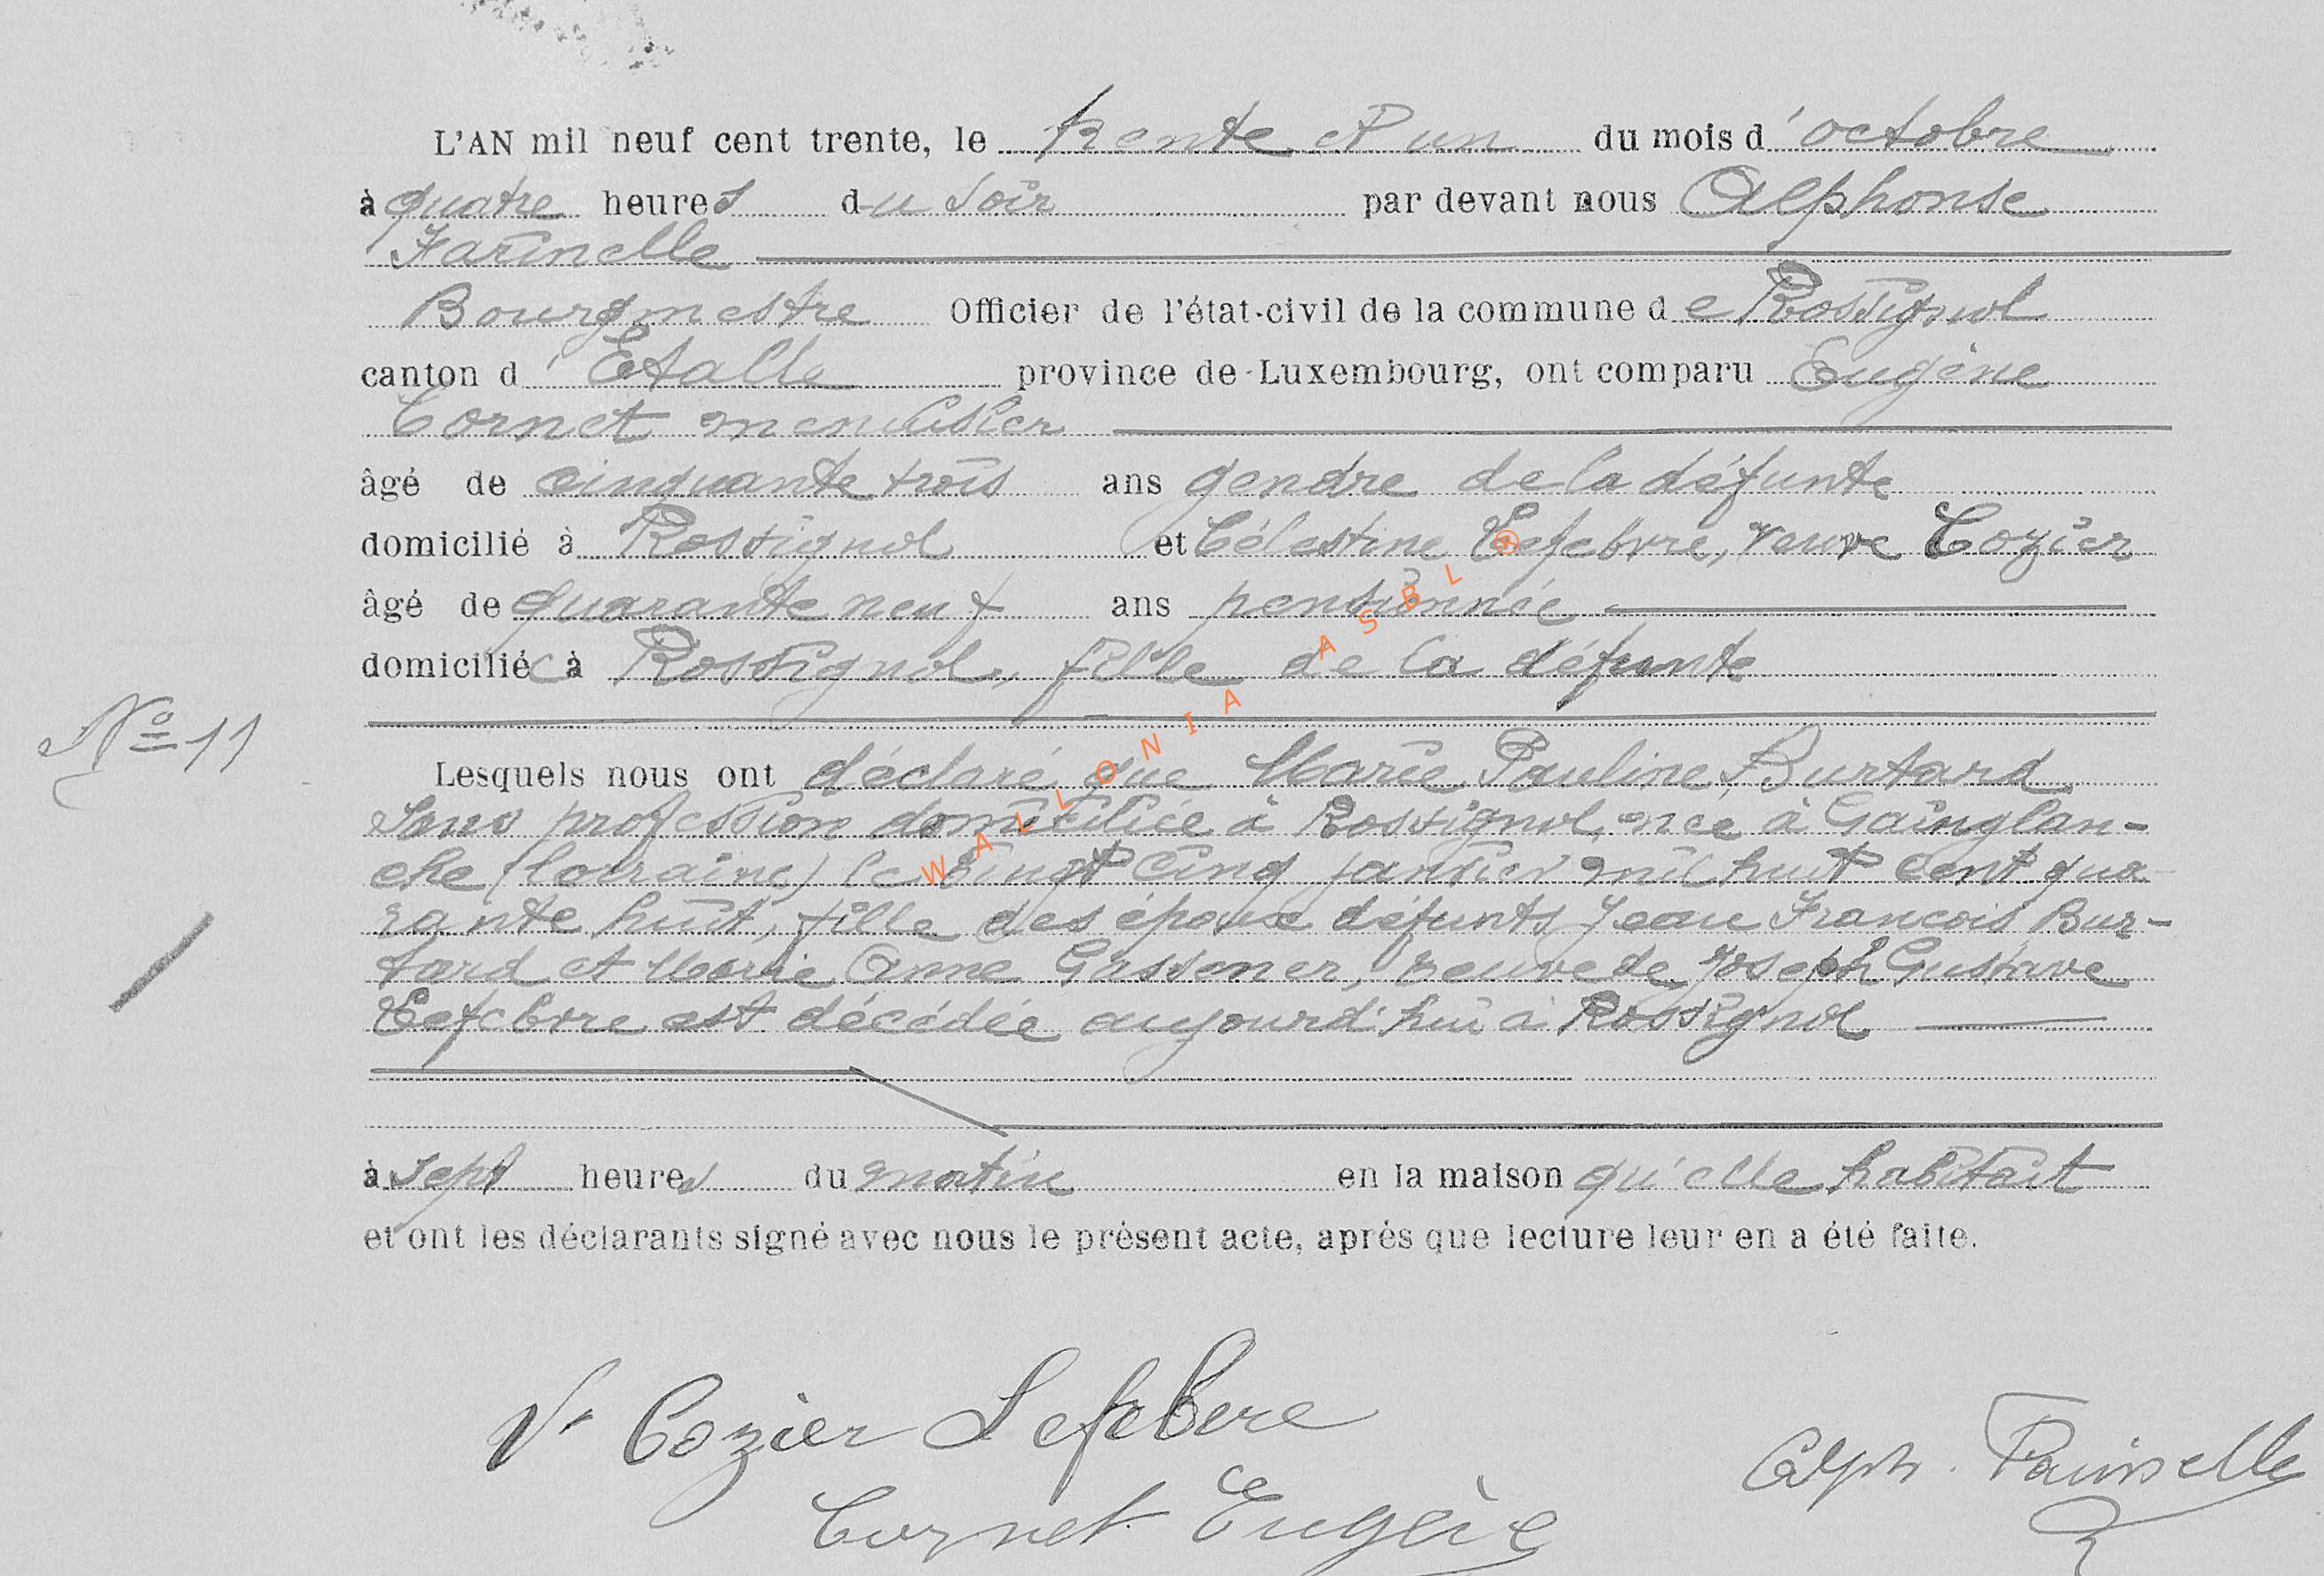 L'AN mil neuf cent trente, le trente et un du mois d'octobre
à quatre heures du soir par devant nous Alphonse
Farinelle
Bourgmestre Officier de l'état-civil de la commune de Rossignol
canton d'Etalle province de Luxembourg, ont comparu Eugène
Cornet menuisier
âgé de cinquante trois ans gendre de la défunte
domicilié à Rossignol et Célestine Lefebvre, veuve Cozier
âgé de quarante neuf ans pensionnée
domiciliée à Rossignol, fille de la défunte
Nº 11
Lesquels nous ont déclaré que Marie Pauline Burtard
sans profession domiciliée à Rossignol, née à Gainglan-
che (lorraine) le vingt cinq janvier mil huit cent qua
rante huit, fille des époux défunts Jean François Bur-
tard et Marie Anne Gassener, veuve de Joseph Gustave
Lefebvre est décédée aujourd'hui à Rossignol
à sept heures du matin en la maison qu'elle habitait
et ont les déclarants signé avec nous le présent acte, après que lecture leur en a été faite.
Vᵉ Cozier Lefebvre
Alph. Farinelle
Cornet Eugène
WALLONIA ASBL ®